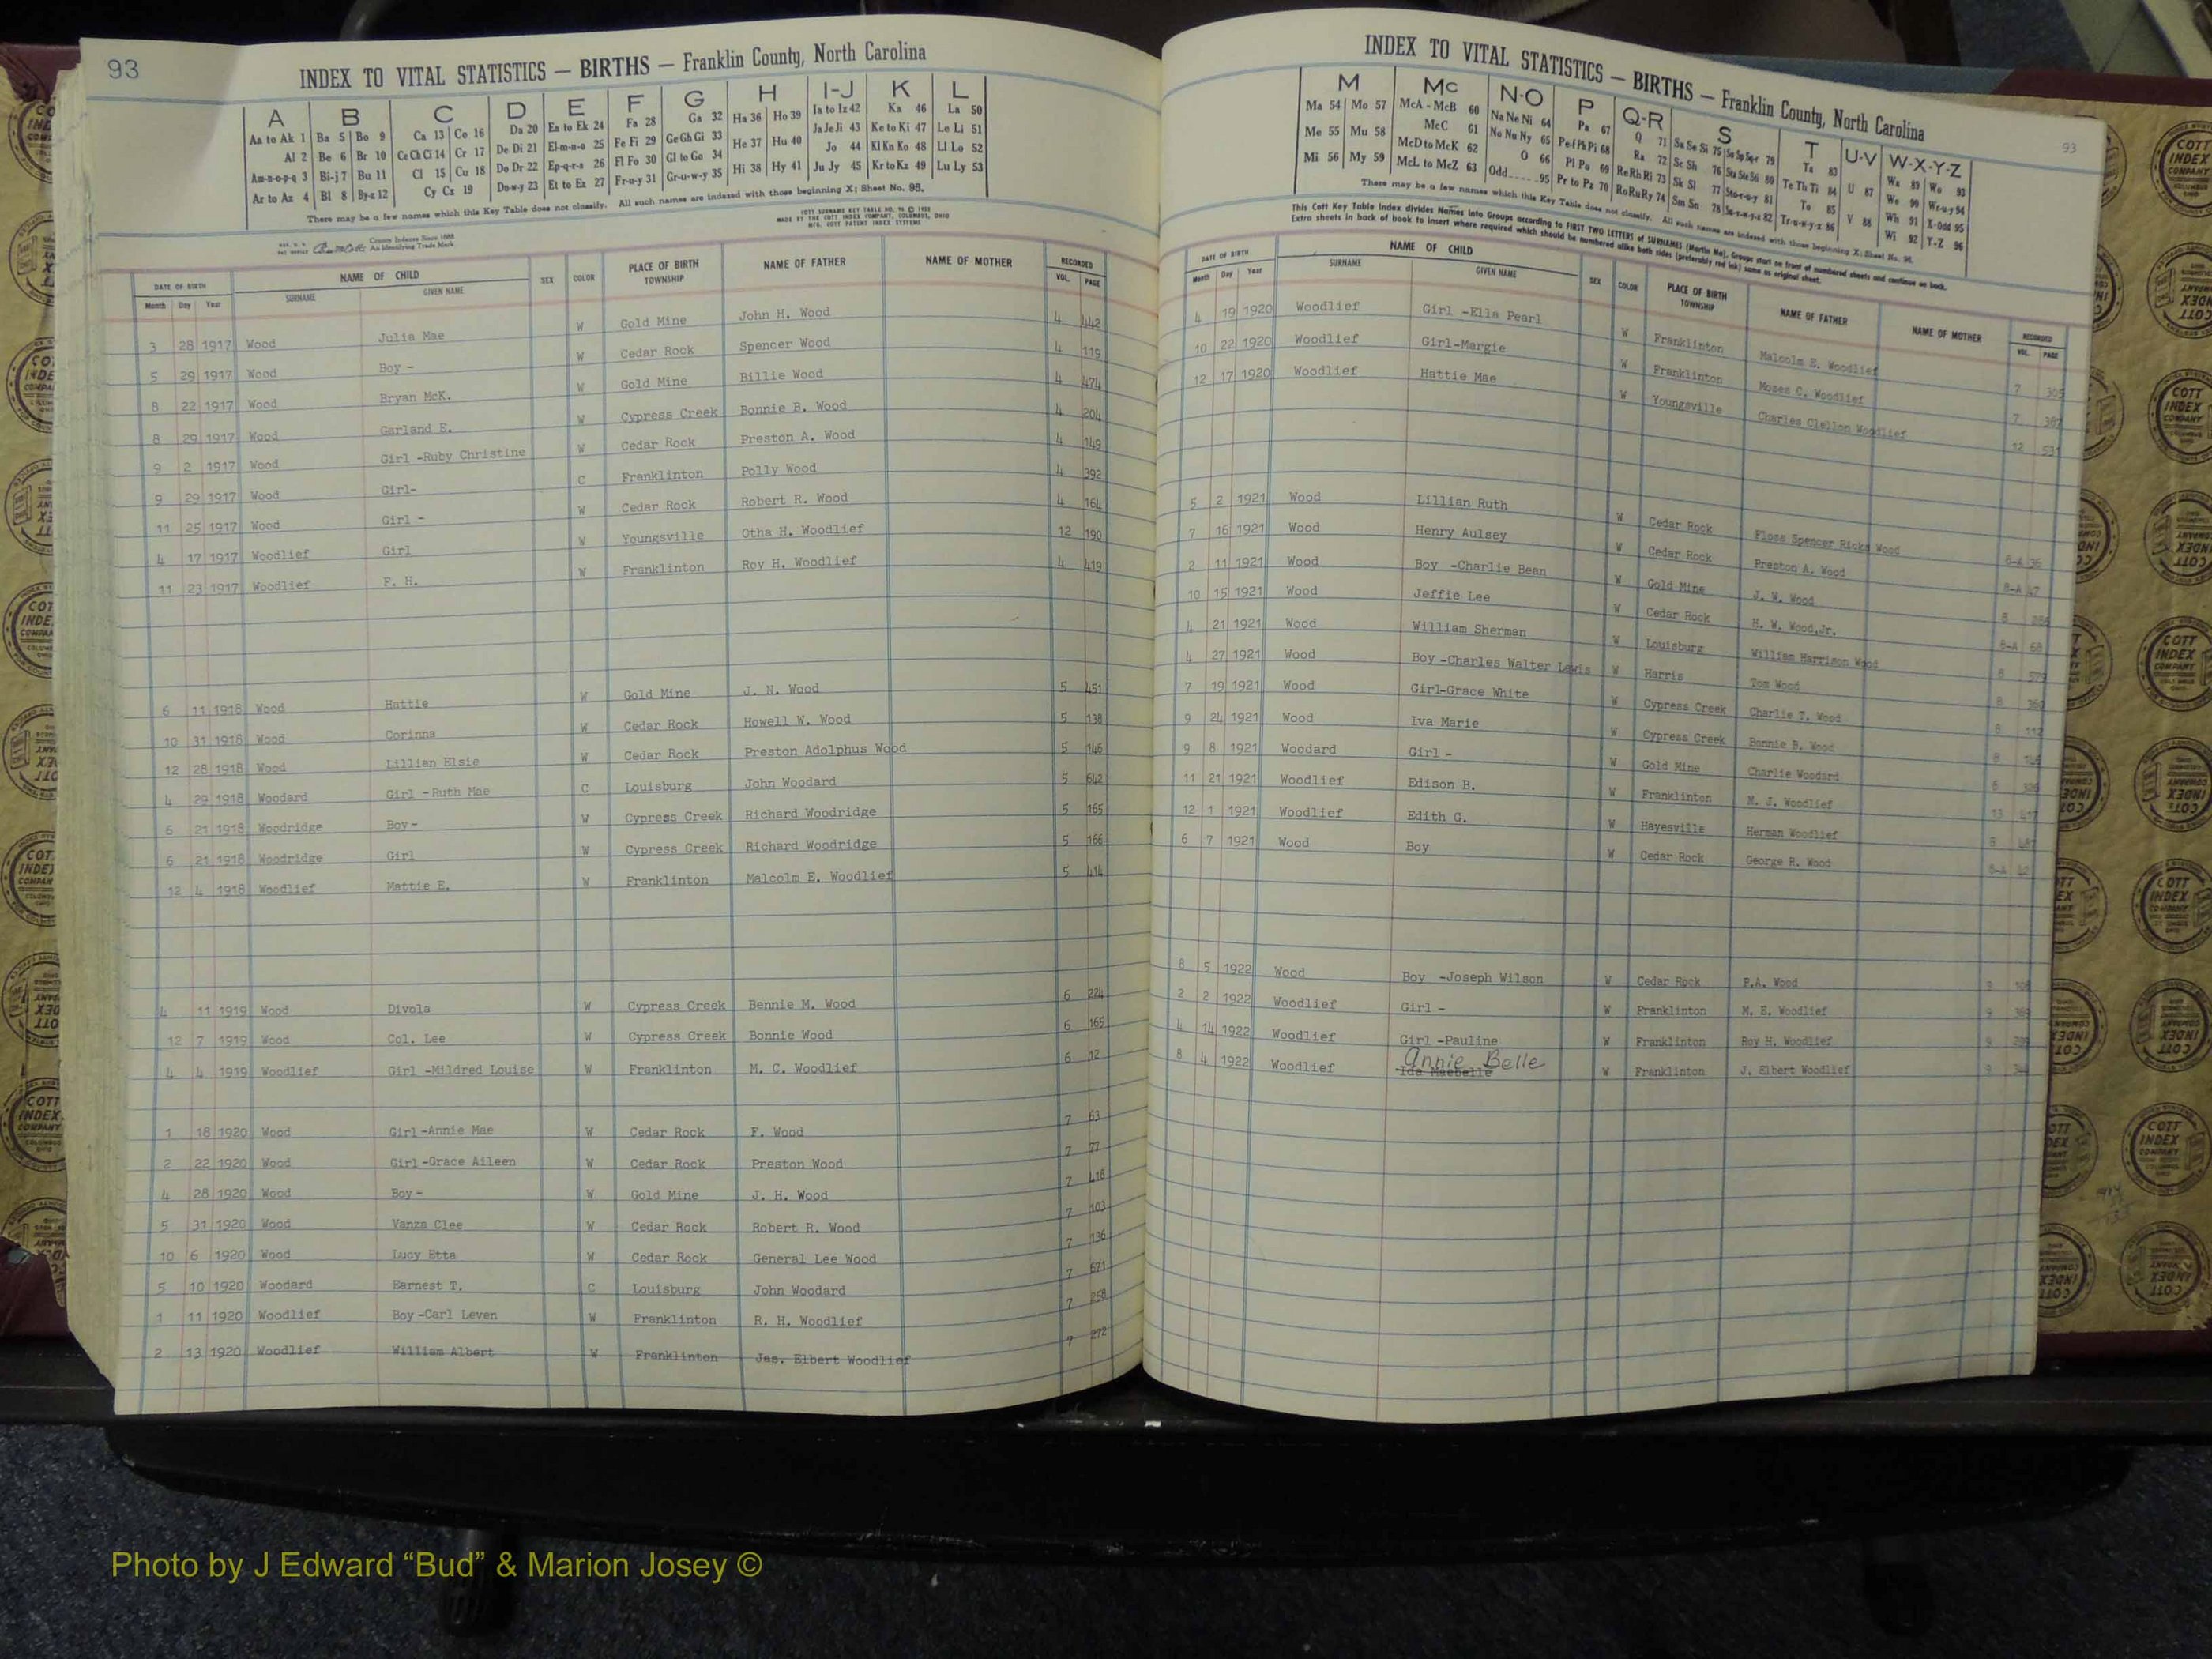 93
INDEX TO VITAL STATISTICS — BIRTHS — Franklin County, North Carolina
A B C D E F G H I-J K L
Aa to Ak 1 Ba 5 Bo 9 Ca 13 Co 16 Da 20 Ea to Ek 24 Fa 28 Ga 32 Ha 36 Ho 39 Ia to Iz 42 Ka 46 La 50
Al 2 Be 6 Br 10 Ce Ch Ci 14 Cr 17 De Di 21 El-m-n-o 25 Fe Fi 29 Ge Gh Gi 33 He 37 Hu 40 Ja Je Ji 43 Ke to Ki 47 Le Li 51
Am-n-o-p-q 3 Bi-j 7 Bu 11 Cl 15 Cu 18 Do Dr 22 Ep-q-r-s 26 Fl Fo 30 Gl to Go 34 Hi 38 Hy 41 Jo 44 Kl Kn Ko 48 Ll Lo 52
Ar to Az 4 Bl 8 By-z 12 Cy Cz 19 Du-w-y 23 Et to Ez 27 Fr-u-y 31 Gr-u-w-y 35 Ju Jy 45 Kr to Kz 49 Lu Ly 53
There may be a few names which this Key Table does not classify. All such names are indexed with those beginning X; Sheet No. 95.
County Indexes Since 1888
An Identifying Trade Mark
MADE BY THE COTT INDEX COMPANY, COLUMBUS, OHIO
DATE OF BIRTH NAME OF CHILD SEX COLOR PLACE OF BIRTH TOWNSHIP NAME OF FATHER NAME OF MOTHER RECORDED
Month Day Year SURNAME GIVEN NAME VOL. PAGE
3 28 1917 Wood Julia Mae W Gold Mine John H. Wood 4 442
5 29 1917 Wood Boy - W Cedar Rock Spencer Wood 4 119
8 22 1917 Wood Bryan McK. W Gold Mine Billie Wood 4 474
8 29 1917 Wood Garland E. W Cypress Creek Bonnie B. Wood 4 204
9 2 1917 Wood Girl -Ruby Christine W Cedar Rock Preston A. Wood 4 149
9 29 1917 Wood Girl- C Franklinton Polly Wood 4 392
11 25 1917 Wood Girl - W Cedar Rock Robert R. Wood 4 164
4 17 1917 Woodlief Girl W Youngsville Otha H. Woodlief 12 190
11 23 1917 Woodlief F. H. W Franklinton Roy H. Woodlief 4 419
6 11 1918 Wood Hattie W Gold Mine J. N. Wood 5 451
10 31 1918 Wood Corinna W Cedar Rock Howell W. Wood 5 138
12 28 1918 Wood Lillian Elsie W Cedar Rock Preston Adolphus Wood 5 146
4 29 1918 Woodard Girl -Ruth Mae C Louisburg John Woodard 5 642
6 21 1918 Woodridge Boy- W Cypress Creek Richard Woodridge 5 165
6 21 1918 Woodridge Girl W Cypress Creek Richard Woodridge 5 166
12 4 1918 Woodlief Mattie E. W Franklinton Malcolm E. Woodlief 5 414
4 11 1919 Wood Divola W Cypress Creek Bennie M. Wood 6 224
12 7 1919 Wood Col. Lee W Cypress Creek Bonnie Wood 6 165
4 4 1919 Woodlief Girl -Mildred Louise W Franklinton M. C. Woodlief 6 12
1 18 1920 Wood Girl-Annie Mae W Cedar Rock F. Wood 7 63
2 22 1920 Wood Girl-Grace Aileen W Cedar Rock Preston Wood 7 77
4 28 1920 Wood Boy- W Gold Mine J. H. Wood 7 418
5 31 1920 Wood Vanza Clee W Cedar Rock Robert R. Wood 7 103
10 6 1920 Wood Lucy Etta W Cedar Rock General Lee Wood 7 136
5 10 1920 Woodard Earnest T. C Louisburg John Woodard 7 671
1 11 1920 Woodlief Boy-Carl Leven W Franklinton R. H. Woodlief 7 258
2 13 1920 Woodlief William Albert W Franklinton Jas. Elbert Woodlief 7 272
INDEX TO VITAL STATISTICS — BIRTHS — Franklin County, North Carolina
93
M Mc N-O P Q-R S T U-V W-X-Y-Z
Ma 54 Mo 57 McA - McB 60 Na Ne Ni 64 Pa 67 Q 71 Sa Se Si 75 79 Ta 83 Wa 89 Wo 93
Me 55 Mu 58 McC 61 No Nu Ny 65 Pe-f Ph Pi 68 Ra 72 Sc Sh 76 80 Te Th Ti 84 U 87 We 90 Wr-u-y 94
Mi 56 My 59 McD to McK 62 O 66 Pl Po 69 Re Rh Ri 73 Sk Sl 77 Sto-r-u-y 81 To 85 V 88 Wh 91 X-Odd 95
McL to McZ 63 Odd 95 Pr to Pz 70 Ro Ru Ry 74 Sm Sn 78 82 Tr-u-w-y-z 86 Wi 92 Y-Z 96
There may be a few names which this Key Table does not classify. All such names are indexed with those beginning X; Sheet No. 95.
This Cott Key Table Index divides Names into Groups according to FIRST TWO LETTERS of SURNAMES (Martin Ma). Groups start on front of numbered sheets and continue on back.
Extra sheets in back of book to insert where required which should be numbered alike both sides (preferably red ink) same as original sheet.
DATE OF BIRTH NAME OF CHILD SEX COLOR PLACE OF BIRTH TOWNSHIP NAME OF FATHER NAME OF MOTHER RECORDED
Month Day Year SURNAME GIVEN NAME VOL. PAGE
4 19 1920 Woodlief Girl -Ella Pearl W Franklinton Malcolm E. Woodlief 7
10 22 1920 Woodlief Girl-Margie W Franklinton Moses C. Woodlief 7
12 17 1920 Woodlief Hattie Mae W Youngsville Charles Clellon Woodlief 12 531
5 2 1921 Wood Lillian Ruth W Cedar Rock Floss Spencer Ricks Wood 8-A 36
7 16 1921 Wood Henry Aulsey W Cedar Rock Preston A. Wood 8-A 47
2 11 1921 Wood Boy -Charlie Bean W Gold Mine J. W. Wood 8
10 15 1921 Wood Jeffie Lee W Cedar Rock H. W. Wood,Jr. 8-A 68
4 21 1921 Wood William Sherman W Louisburg William Harrison Wood 8
4 27 1921 Wood Boy -Charles Walter Lewis W Harris Tom Wood 8
7 19 1921 Wood Girl-Grace White W Cypress Creek Charlie T. Wood 8
9 24 1921 Wood Iva Marie W Cypress Creek Bonnie B. Wood 8
9 8 1921 Woodard Girl - W Gold Mine Charlie Woodard
11 21 1921 Woodlief Edison B. W Franklinton M. J. Woodlief 13
12 1 1921 Woodlief Edith G. W Hayesville Herman Woodlief 8
6 7 1921 Wood Boy W Cedar Rock George R. Wood 8-A 42
8 5 1922 Wood Boy -Joseph Wilson W Cedar Rock P.A. Wood 9
2 2 1922 Woodlief Girl - W Franklinton M. E. Woodlief 9
4 14 1922 Woodlief Girl -Pauline W Franklinton Roy H. Woodlief 9
Annie Belle
8 4 1922 Woodlief Ida Maebelle W Franklinton J. Elbert Woodlief 9
Photo by J Edward “Bud” & Marion Josey ©